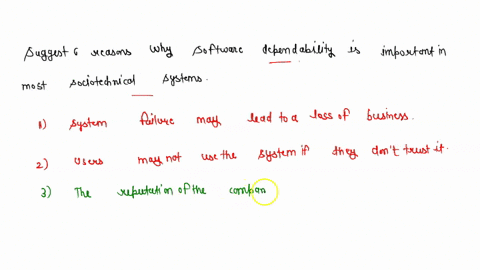 Suggest 6 reasons why software dependability is important in
most sociotechnical systems.
1) System failure may lead to a loss of business.
2) Users may not use the system if they don't trust it.
3) The reputation of the compan